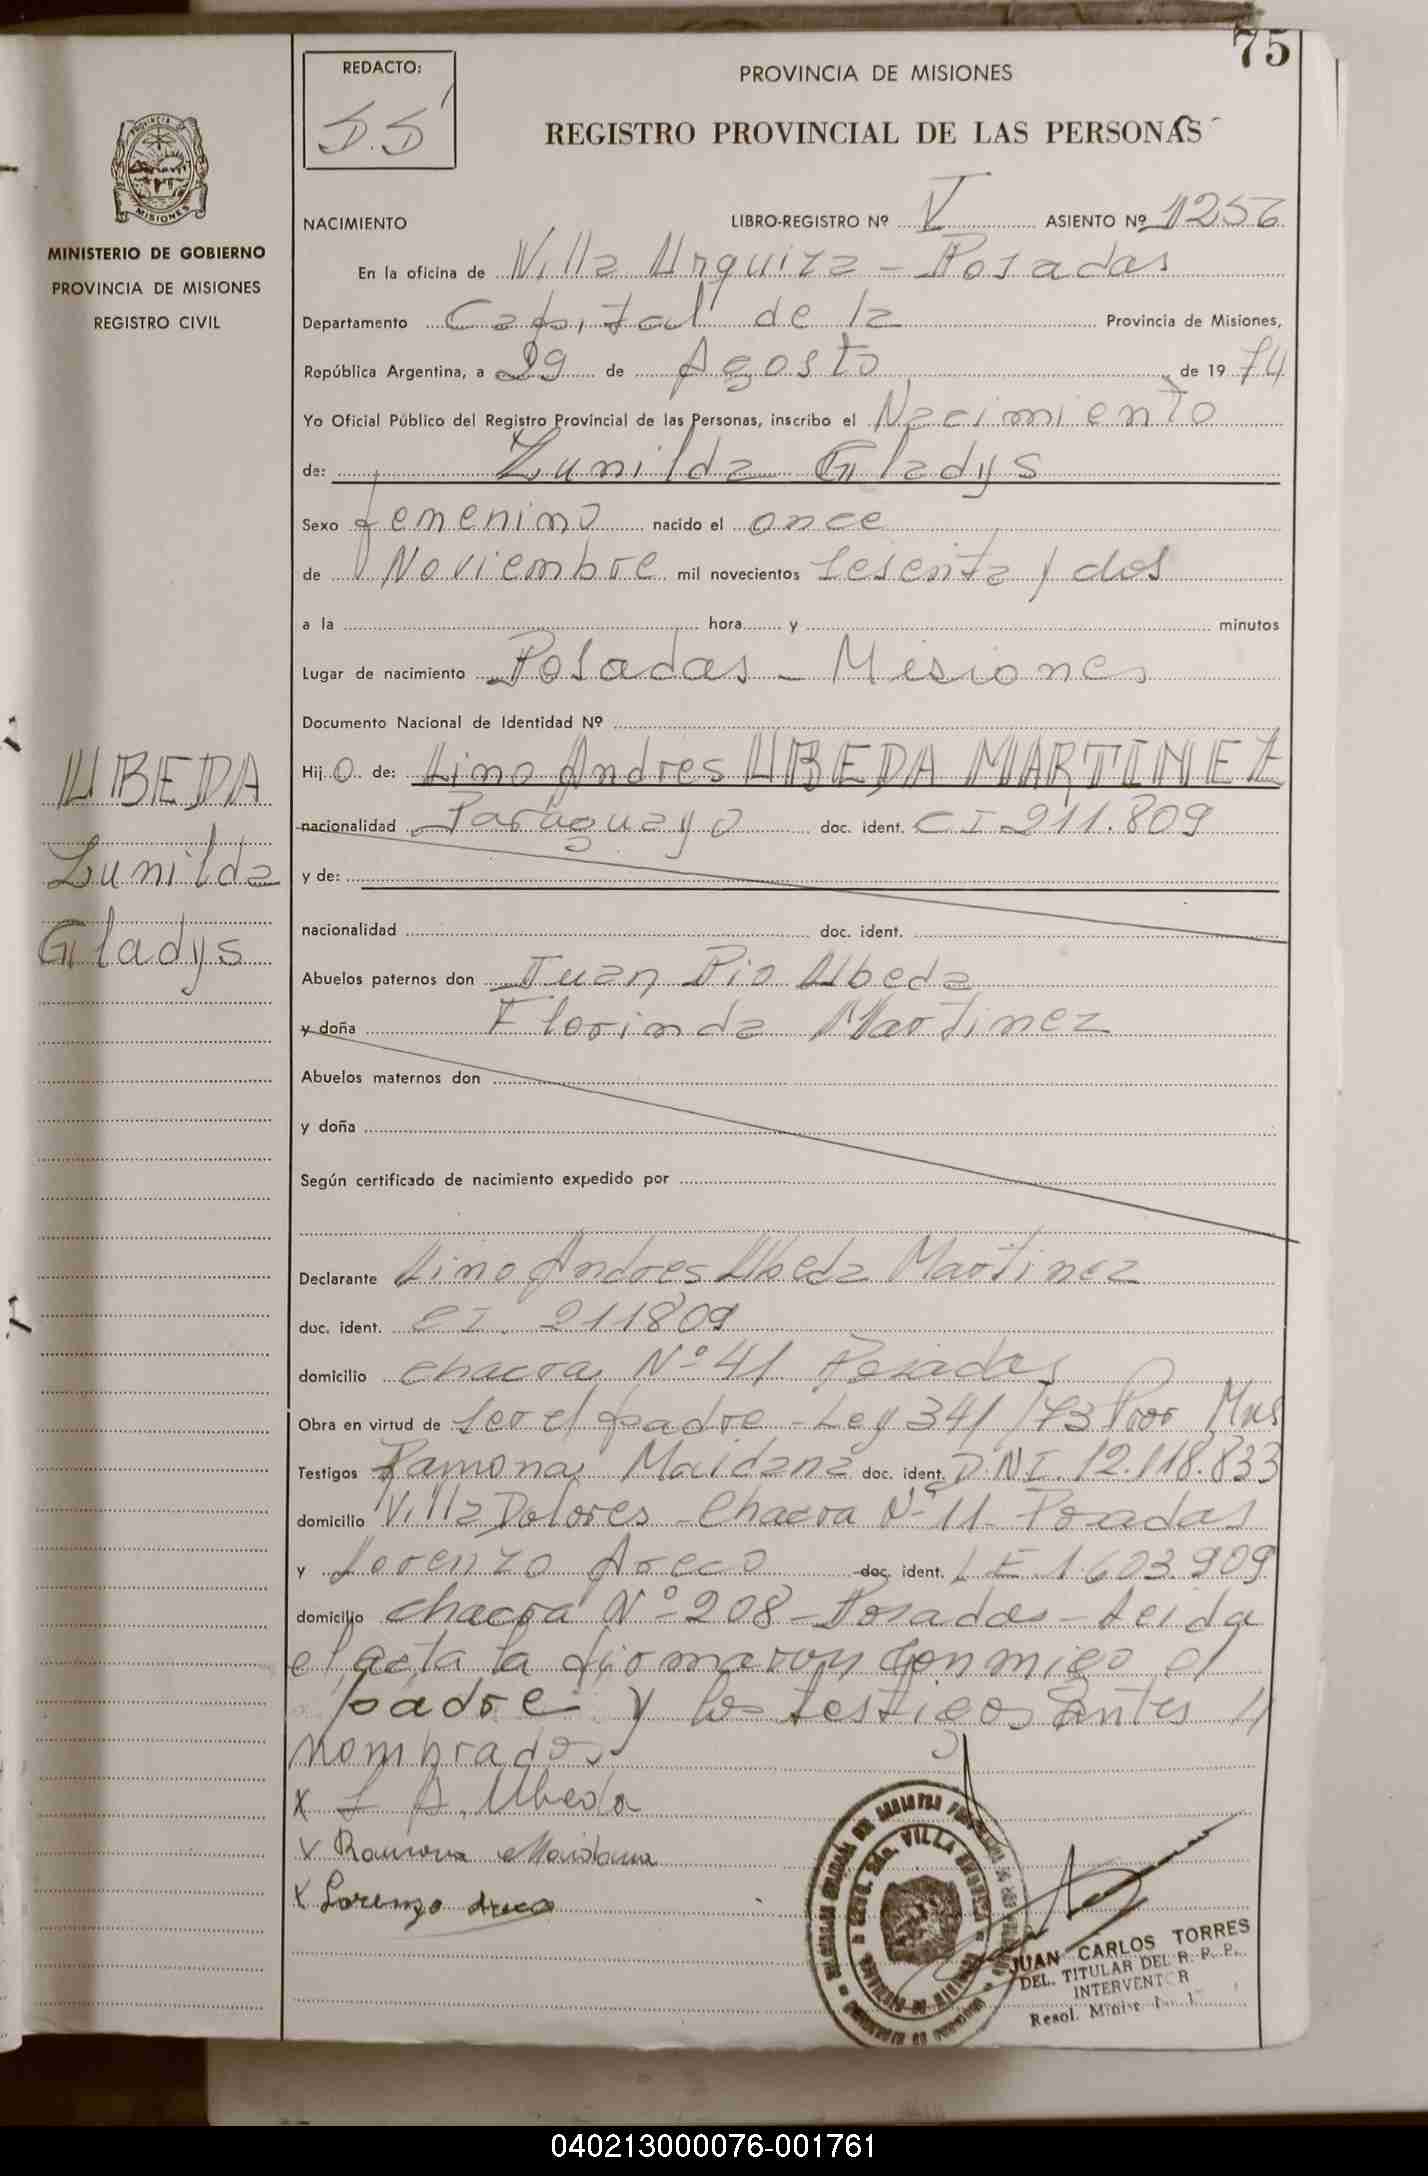 75
REDACTO:
PROVINCIA DE MISIONES
REGISTRO PROVINCIAL DE LAS PERSONAS
MINISTERIO DE GOBIERNO
PROVINCIA DE MISIONES
REGISTRO CIVIL
NACIMIENTO LIBRO-REGISTRO Nº V ASIENTO Nº 1256
En la oficina de Villa Urquiza - Posadas
Departamento Capital de la Provincia de Misiones,
República Argentina, a 29 de Agosto de 1974
Yo Oficial Público del Registro Provincial de las Personas, inscribo el Nacimiento
de: Zunilda Gladys
Sexo femenino nacido el once
de Noviembre mil novecientos sesenta y dos
a la hora y minutos
Lugar de nacimiento Posadas - Misiones
Documento Nacional de Identidad Nº
UBEDA
Zunilda
Gladys
Hijo de: Lino Andres UBEDA MARTINEZ
nacionalidad Paraguayo doc. ident. CI 211.809
y de:
nacionalidad doc. ident.
Abuelos paternos don Juan Pio Ubeda
y doña Florinda Martinez
Abuelos maternos don
y doña
Según certificado de nacimiento expedido por
Declarante Lino Andres Ubeda Martinez
doc. ident. CI. 211809
domicilio chacra Nº 41 Posadas
Obra en virtud de ser el padre - Ley 341/73 Pror Mns
Testigos Ramona Maidana doc. ident. D.N.I. 12.118.833
domicilio Villa Dolores - Chacra Nº 11 - Posadas
y Lorenzo Areco doc. ident. L E 1.603.909
domicilio chacra Nº 208 - Posadas - Leida
el acta la firmaron conmigo el
padre y los testigos antes
nombrados
x L A. Ubeda
x Ramona Maidana
x Lorenzo Areco
VILLA URQUIZA
JUAN CARLOS TORRES
DEL. TITULAR DEL R. P. P.
INTERVENTOR
Resol.
040213000076-001761